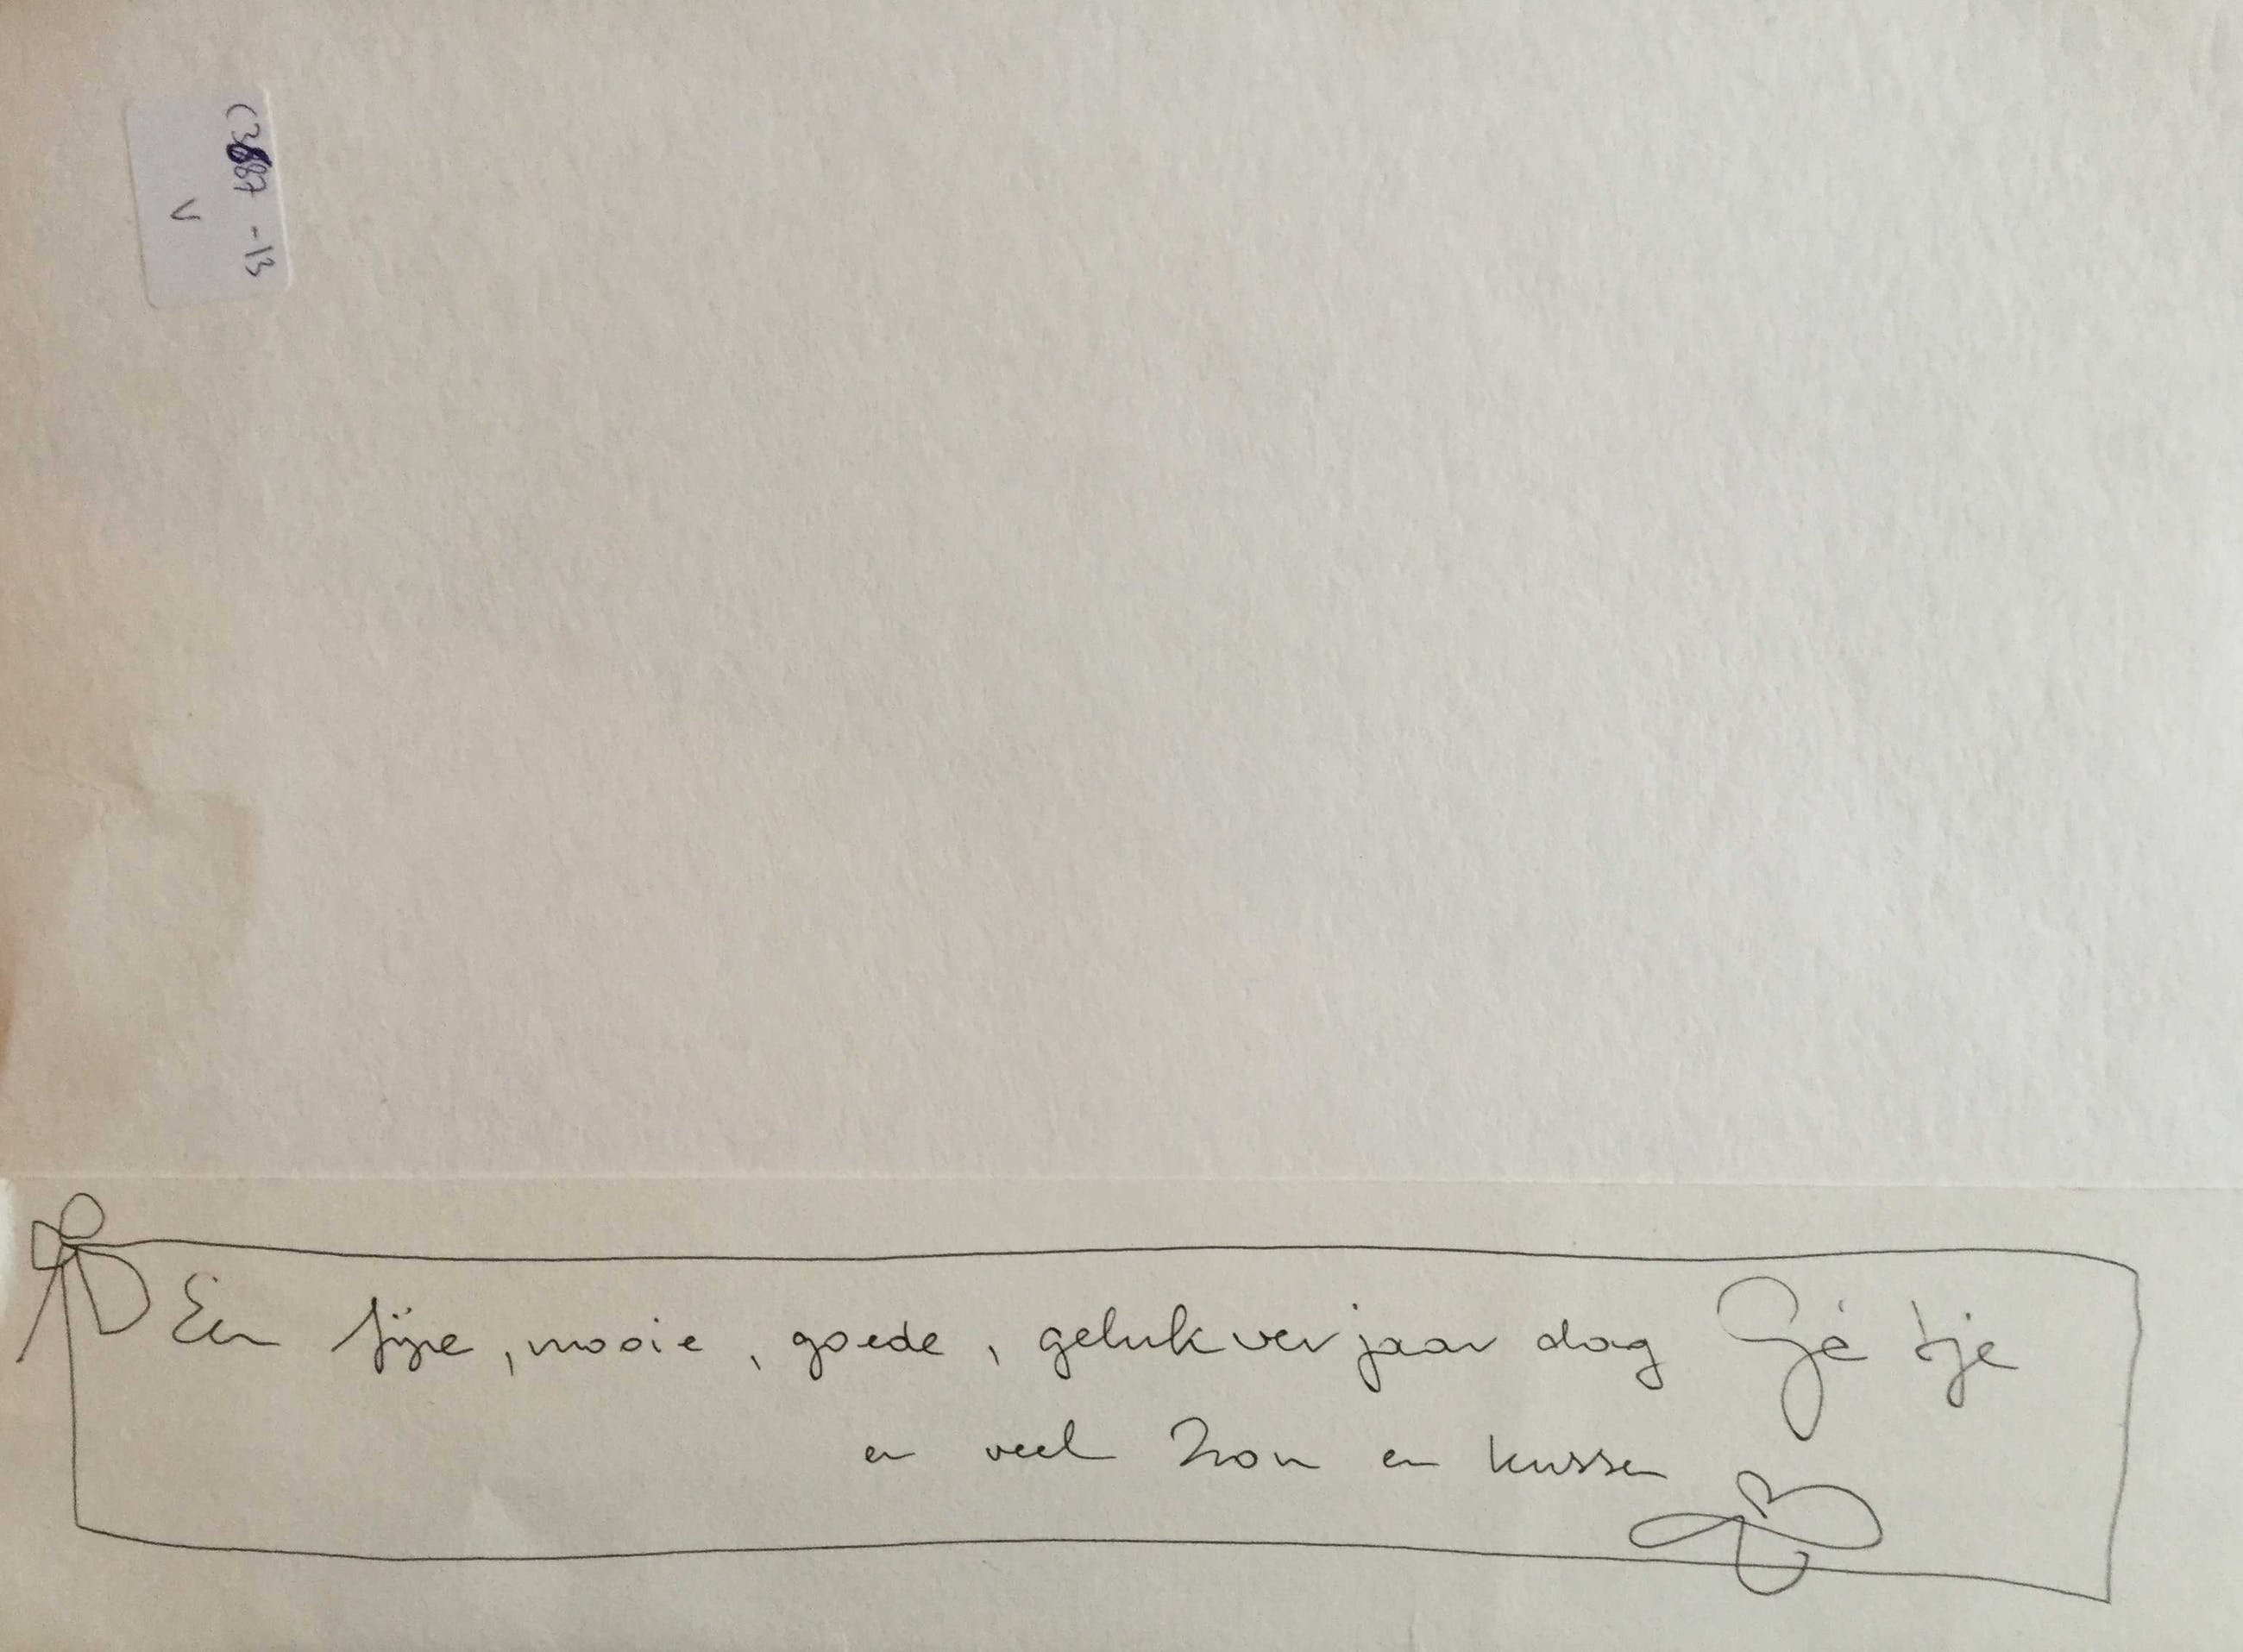 -13
V
Een fijne, mooie, goede, gelukverjaardag Gé'tje
en veel zon en kussen